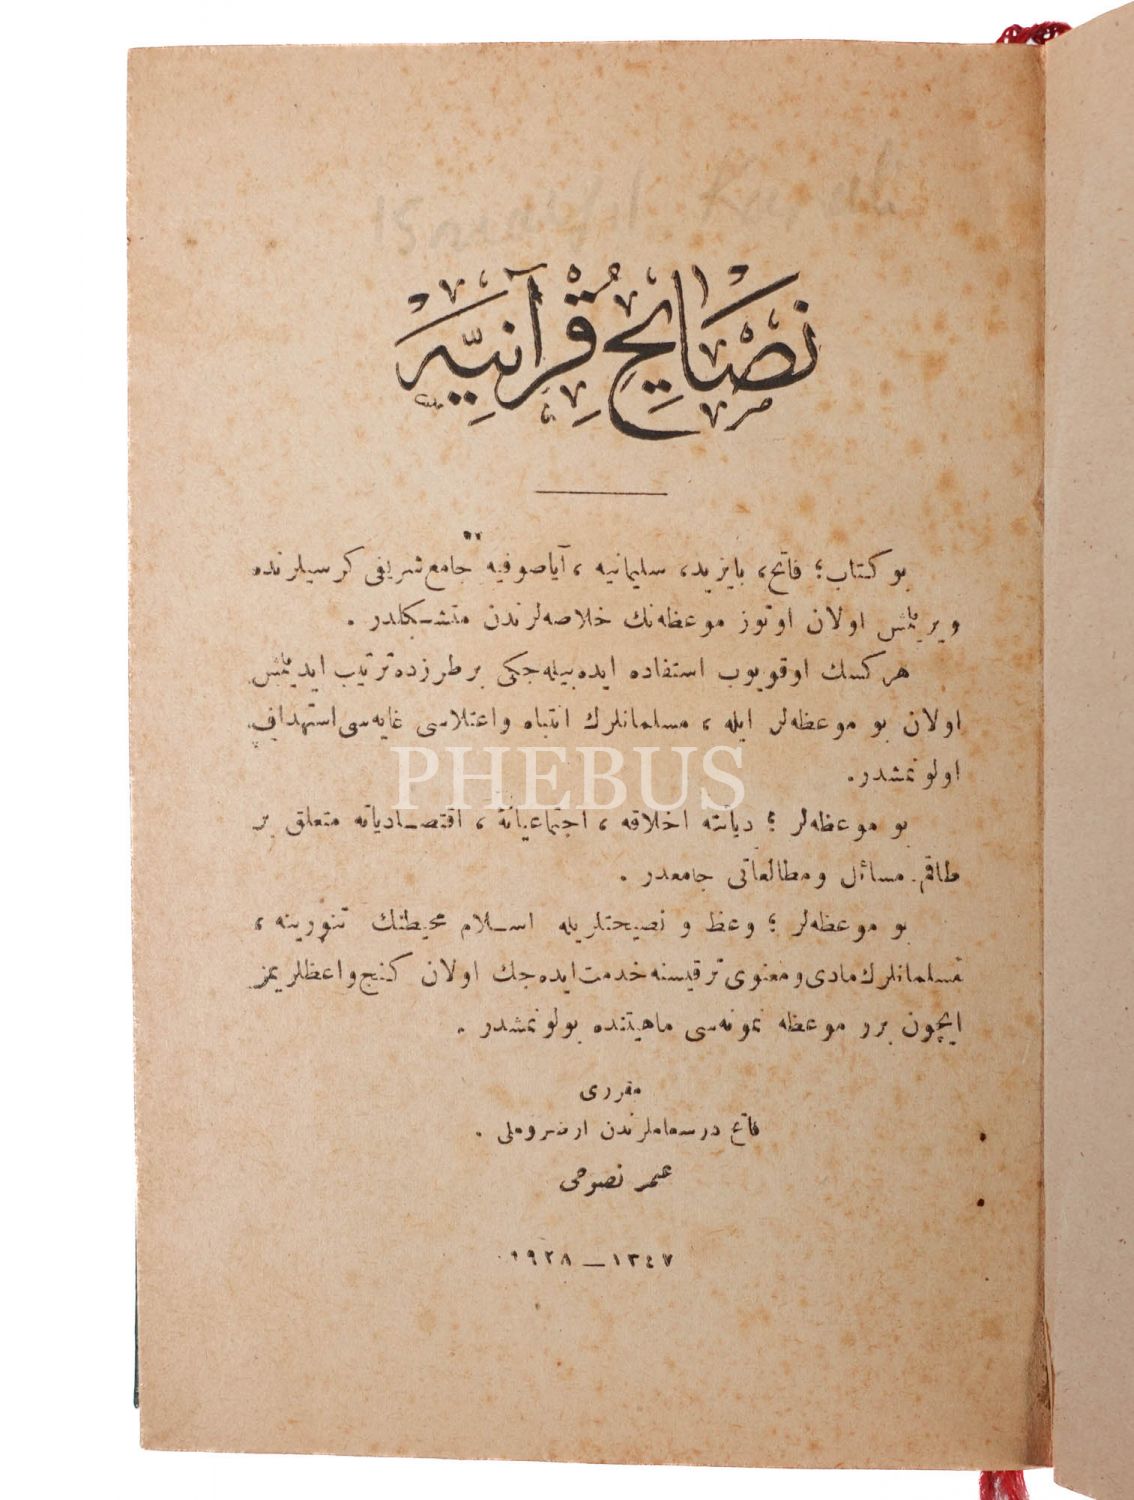 نَصَايِحِ قُرْآنِيَّه
بو كتاب؛ فاتح، بايزيد، سليمانيه، آياصوفيه جامع شريفى كرسيلرنده
ويريلمش اولان اوتوز موعظه‌نك خلاصه‌لرندن متشكلدر.
هركسك اوقويوب استفاده ايده‌بيله‌جكى برطرزده ترتيب ايديلمش
اولان بو موعظه‌لر ايله، مسلمانلرك انتباه واعتلاسى غايه‌سى استهداف
اولونمشدر.
PHEBUS
بو موعظه‌لر؛ دياناته اخلاقه، اجتماعياته، اقتصادياته متعلق بر
طاقم مسائل ومطالعاتى جامعدر.
بو موعظه‌لر؛ وعظ و نصيحتلريله اسلام محيطنك تنويرينه،
مسلمانلرك مادى ومعنوى ترقيسنه خدمت ايده‌جك اولان كنج واعظلريمز
ايچون برر موعظه نمونه‌سى ماهيتنده بولونمشدر.
مقررى
فاتح درسعاملرندن ارضروملى.
عمر نصوحى
١٣٤٧ — ١٩٢٨